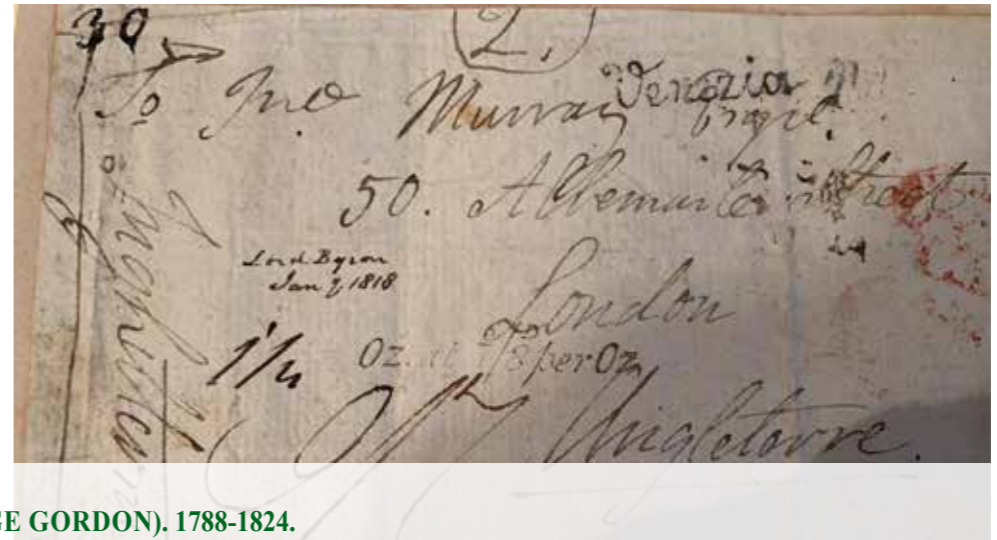 30
2.
To Jno Murray Esqre.
Venezia
50. Albemarle Street
Lord Byron
Jan 7, 1818
London
1 1/4
Oz. at /8 per Oz
Angleterre.
GE GORDON). 1788-1824.